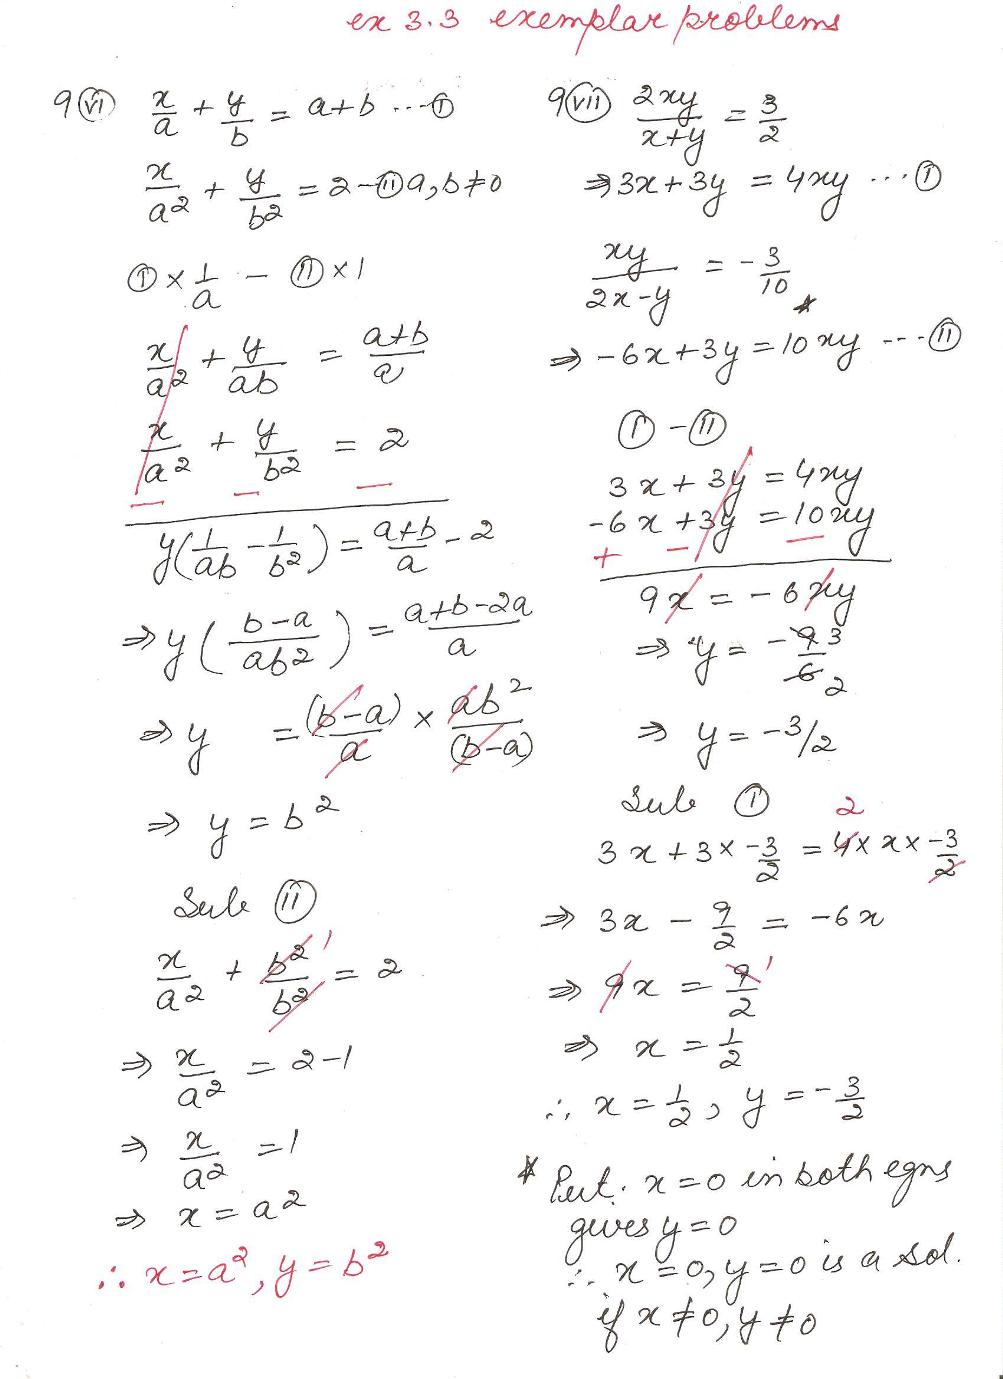 ex 3.3 exemplar problems
9 (vi) x/a + y/b = a+b ... (i)
x/a² + y/b² = 2 - (ii) a, b ≠ 0
(i) × 1/a - (ii) × 1
x/a² + y/ab = a+b/a
x/a² + y/b² = 2
— — —
y(1/ab - 1/b²) = a+b/a - 2
⇒ y(b-a/ab²) = a+b-2a/a
⇒ y = (b-a)/a × ab²/(b-a)
⇒ y = b²
Sub (ii)
x/a² + b²/b² 1 = 2
⇒ x/a² = 2-1
⇒ x/a² = 1
⇒ x = a²
∴ x = a², y = b²
9 (vii) 2xy/x+y = 3/2
⇒ 3x + 3y = 4xy ... (i)
xy/2x-y = -3/10 *
⇒ -6x + 3y = 10xy --- (ii)
(i) - (ii)
3x + 3y = 4xy
-6x + 3y = 10xy
+ — —
9x = -6xy
⇒ y = -9 3/6 2
⇒ y = -3/2
Sub (i) 2
3x + 3 × -3/2 = 4 × x × -3/2
⇒ 3x - 9/2 = -6x
⇒ 9x = 9 1/2
⇒ x = 1/2
∴ x = 1/2, y = -3/2
* Put. x = 0 in both eqns
gives y = 0
∴ x = 0, y = 0 is a sol.
if x ≠ 0, y ≠ 0